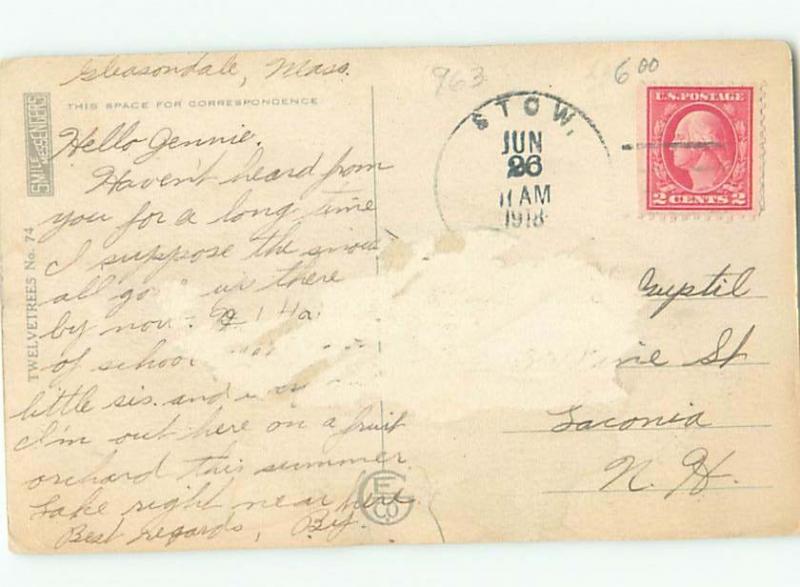 Gleasondale, Mass.
THIS SPACE FOR CORRESPONDENCE
Hello Jennie.
Haven't heard from
you for a long time
I suppose the snow
all go there
by now
of school
little sis. and
I'm out here on a fruit
orchard this summer
Lake right near here
Best regards,
SMILE MESSENGERS
TWELVETREES No. 74
963
6 00
STOW.
JUN
26
11 AM
1918
U.S. POSTAGE
2 CENTS 2
Guptil
St
Laconia
N. H.